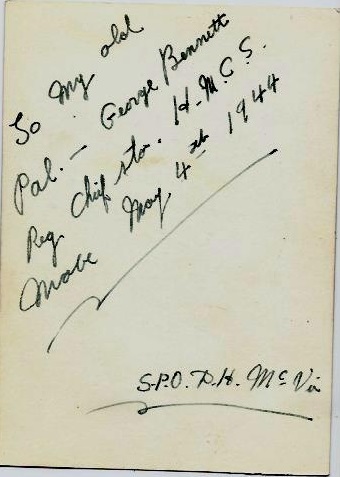 To My old
Pal. — George Bennett
Reg Chief sto. H.M.C.S.
May 4th 1944
S.P.O. D.H. McV